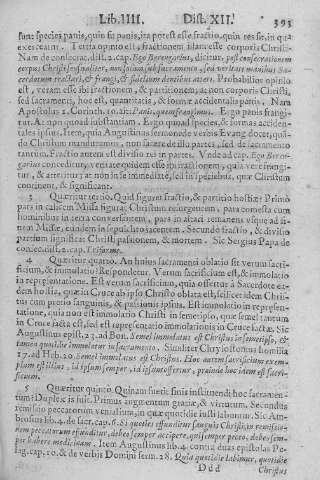 Lib. IIII. Dist. XII. 393
sunt species panis, quin sit panis, ita potest esse fractio, quin res sit in qua
exerceatur. Tertia opinio est, fractionem illam esse corporis Christi.
Nam de consecrat. dist. 2. cap. Ego Berengarius, dicitur, post consecrationem
corpus Christi sensualiter, non solum sub sacramento, sed veritate manibus Sa-
cerdotum tractari, & frangi, & fidelium dentibus atteri. Probabilior opinio
est, veram esse ibi fractionem, & partitionem, at non corporis Christi,
sed sacramenti, hoc est, quantitatis, & formæ accidentalis panis. Nam
Apostolus 1. Corinth. 10. ait: Panis, quem frangimus. Ergo panis frangi-
tur. At non quoad substantiam. Ergo quoad species, & formas acciden-
tales ipsius. Item, quia Augustinus sermone de verbis Evang. docet, quan-
do Christum manducamus, non facere de illo partes, sed de sacramento
tantum. Fractio autem est divisio rei in partes. Unde ad cap. Ego Beren-
garius conceditur, veritate quidem esse ibi fractionem, quia vere frangi-
tur, & atteritur; at non in se immediate, sed in speciebus, quæ Christum
continent, & significant.
3 Quæritur tertio. Quid significat fractio, & partitio hostiæ? Primo
pars in calicem Missa figurat Christum resurgentem, pars comesta cum
hominibus in terra conversantem, pars in altari remanens usque ad fi-
nem Missæ, eundem in sepulchro jacentem. Secundo fractio, & divisio
partium significat Christi passionem, & mortem. Sic Sergius Papa de
consec. dist. 2. cap. Triforme.
4 Quæritur quarto. An hujus sacramenti oblatio sit verum sacri-
ficium, & immolatio? Respondetur. Verum sacrificium est, & immolatio
in repræsentatione. Est verum sacrificium, quia offertur à Sacerdote ea-
dem hostia, quæ in Cruce ab ipso Christo oblata est, scilicet idem Chri-
stus cum pretio sanguinis, & passionis ipsius. Est immolatio in repræsen-
tatione, quia non est immolatio Christi in semetipso, quæ semel tantum
in Cruce facta est, sed est repræsentatio immolationis in Cruce factæ. Sic
Augustinus epist. 23. ad Bon. Semel immolatus est Christus in semetipso, &
tamen quotidie immolatur in sacramento. Similiter Chrysostomus homilia
17. ad Heb. 10. Semel immolatus est Christus. Hoc autem sacrificium exem-
plum est illius, id ipsum semper, id ipsum offertur, proinde hoc idem est sacri-
ficium.
5 Quæritur quinto. Quinam fuerit finis instituendi hoc sacramen-
tum? Duplex is fuit. Primus augmentum gratiæ, & virtutum. Secundus
remissio peccatorum venialium, in quæ quotidie justi labuntur. Sic Am-
brosius lib. 4. de sacr. cap. 6. Si quoties effunditur sanguis Christi, in remissio-
nem peccatorum effunditur, debeo semper accipere, qui semper pecco, debeo sem-
per habere medicinam. Item Augustinus lib. 4. contra duas epistolas Pe-
lag. cap. 10. & de verbis Domini serm. 28. Quia quotidie labimur, quotidie
Ddd Christus